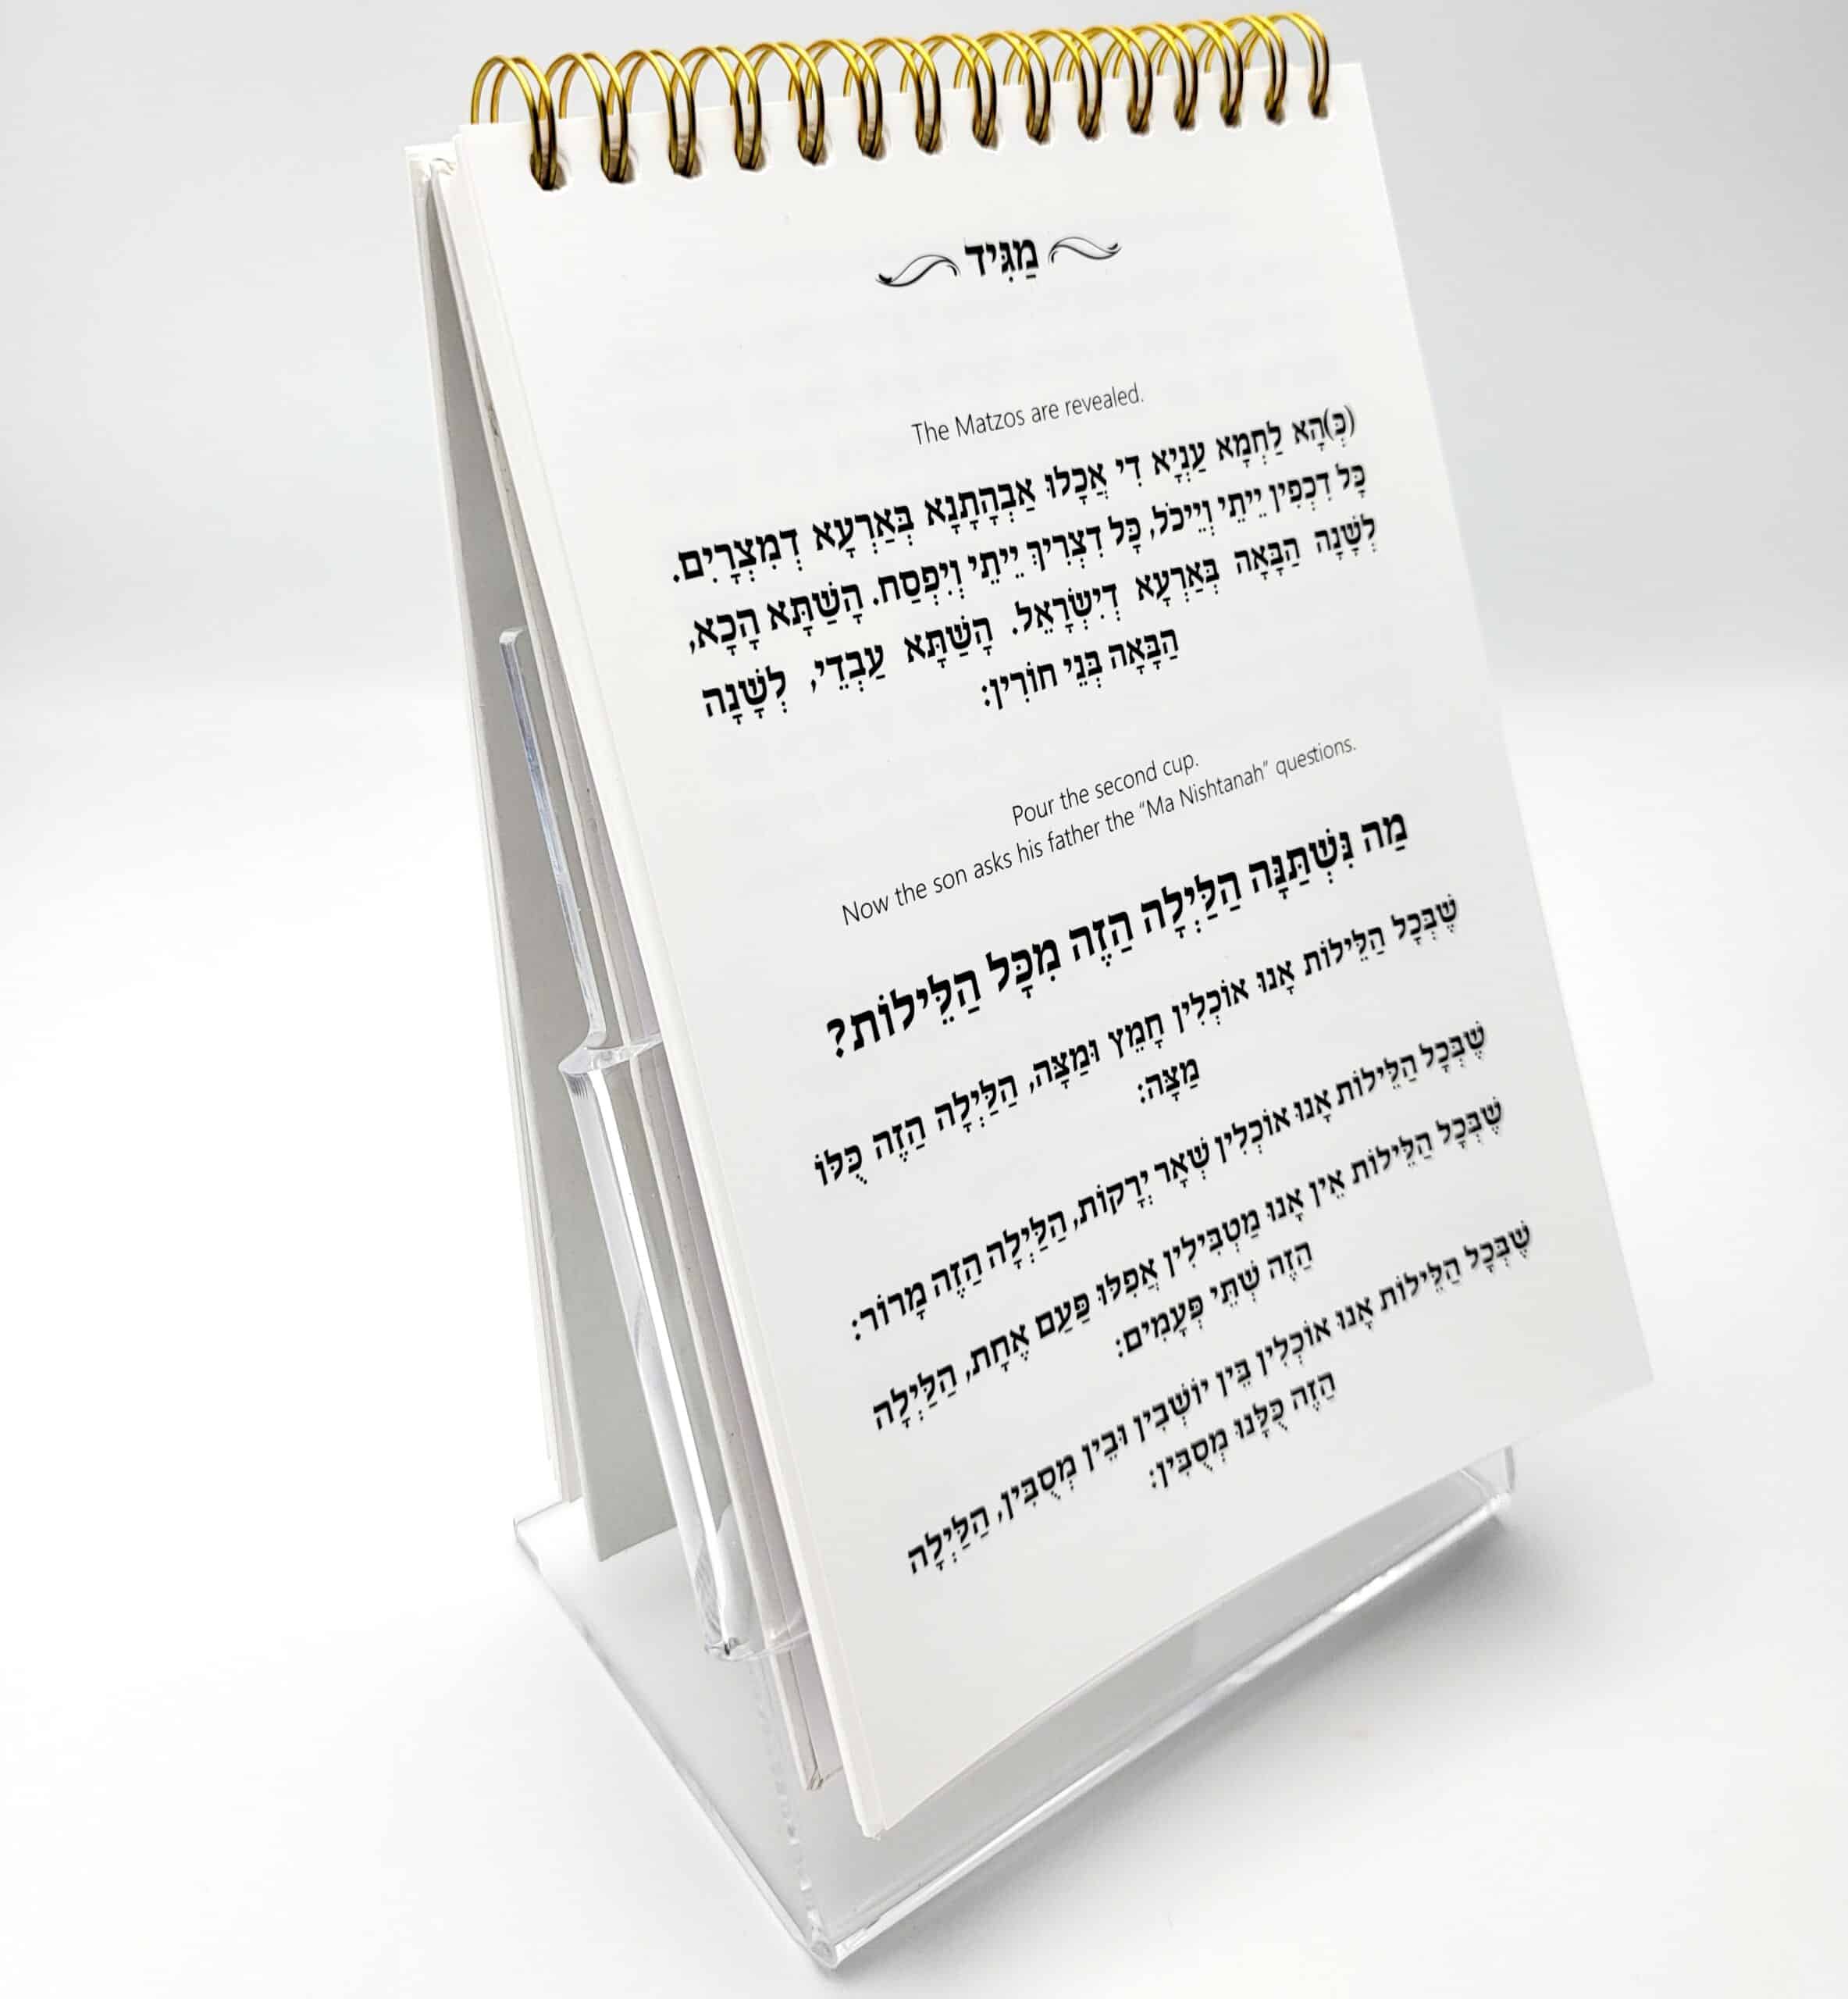 מַגִּיד
The Matzos are revealed.
(כְּ)הָא לַחְמָא עַנְיָא דִי אֲכָלוּ אַבְהָתָנָא בְּאַרְעָא דְמִצְרָיִם.
כָּל דִכְפִין יֵיתֵי וְיֵיכֹל, כָּל דִצְרִיךְ יֵיתֵי וְיִפְסַח. הָשַׁתָּא הָכָא,
לְשָׁנָה הַבָּאָה בְּאַרְעָא דְיִשְׂרָאֵל. הָשַׁתָּא עַבְדֵי, לְשָׁנָה
הַבָּאָה בְּנֵי חוֹרִין:
Pour the second cup.
Now the son asks his father the “Ma Nishtanah” questions.
מַה נִּשְׁתַּנָּה הַלַּיְלָה הַזֶּה מִכָּל הַלֵּילוֹת?
שֶׁבְּכָל הַלֵּילוֹת אָנוּ אוֹכְלִין חָמֵץ וּמַצָּה, הַלַּיְלָה הַזֶּה כֻּלּוֹ
מַצָּה:
שֶׁבְּכָל הַלֵּילוֹת אָנוּ אוֹכְלִין שְׁאָר יְרָקוֹת, הַלַּיְלָה הַזֶּה מָרוֹר:
שֶׁבְּכָל הַלֵּילוֹת אֵין אָנוּ מַטְבִּילִין אֲפִלּוּ פַּעַם אֶחָת, הַלַּיְלָה
הַזֶּה שְׁתֵּי פְּעָמִים:
שֶׁבְּכָל הַלֵּילוֹת אָנוּ אוֹכְלִין בֵּין יוֹשְׁבִין וּבֵין מְסֻבִּין, הַלַּיְלָה
הַזֶּה כֻּלָּנוּ מְסֻבִּין: